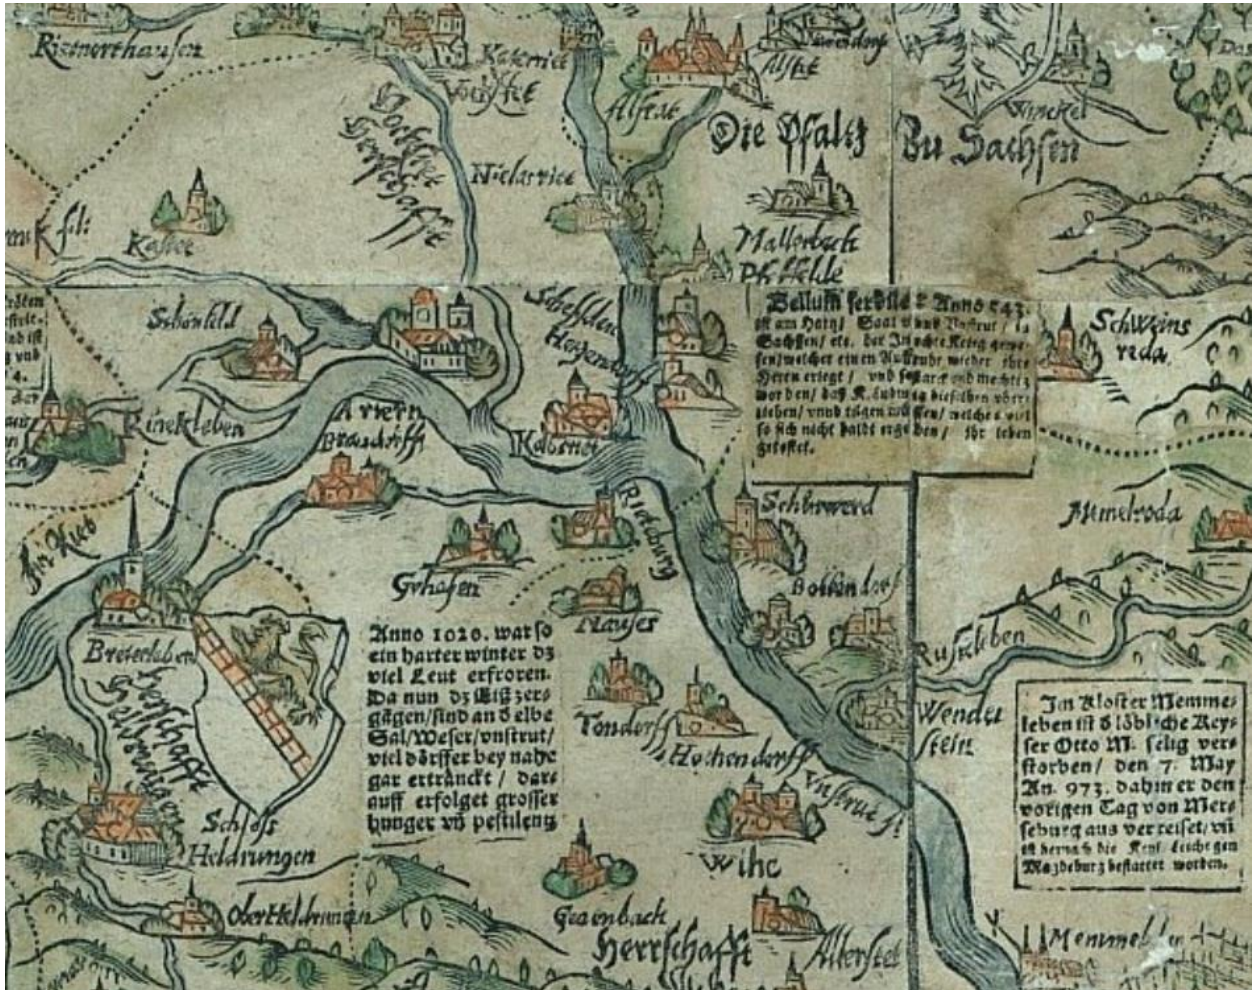 Rietnorthausen
Katerriet
Voigstet
Alstet
Alstat
Die Pfaltz Zu Sachsen
Niclasriet
Herrschafft
Kalbe
Mallerbach
Pfeffelde
Schönfeld
Bellum servile Anno 843.
ist am Hartz/ Saal vnd Vnstrut / in
Sachsen/ etc. der Knechte Krieg gewe-
sen/welcher einen Auffruhr wieder ihre
Heren erregt / vnd so starck vnd mechtig
worden/ daß K. Ludwig dieselben vber-
ziehen/ vnnd
so sich nicht baldt ergeben / ihr leben
gekostet.
Schweins
reda.
Rinckleben
Artern
Brandorff
Kalbsriet
Riteburg
Schönwerd
Mimelroda
Im Rieb
Gehofen
Nauses
Bottendorf
Rusleben
Breterleben
Herrschafft
Heldrungen
Anno 1020. war so
ein harter winter dz
viel Leut erfroren.
Da nun dz Eiß zers-
gãgen/sind an d elbe
Sal/Weser/vnstrut/
viel dörffer bey nahe
gar ertränckt / dar-
auff erfolget grosser
hunger vñ pestilentz
Tondorff
Hachendorff
Vnstrut fl.
Wendel
stein
Im Kloster Memme-
leben ist d löbliche Key-
ser Otto M. selig ver-
storben/ den 7. May
An. 973. dahin er den
vorigen Tag von Mer-
seburg aus verreiset/ vñ
ist hernach die Keys. Leiche gen
Magdeburg bestattet worden.
Schloss
Heldrungen
Wihe
Ober Heldrungen
Gegenbach
Herrschafft
Allerstet
Memmeleben